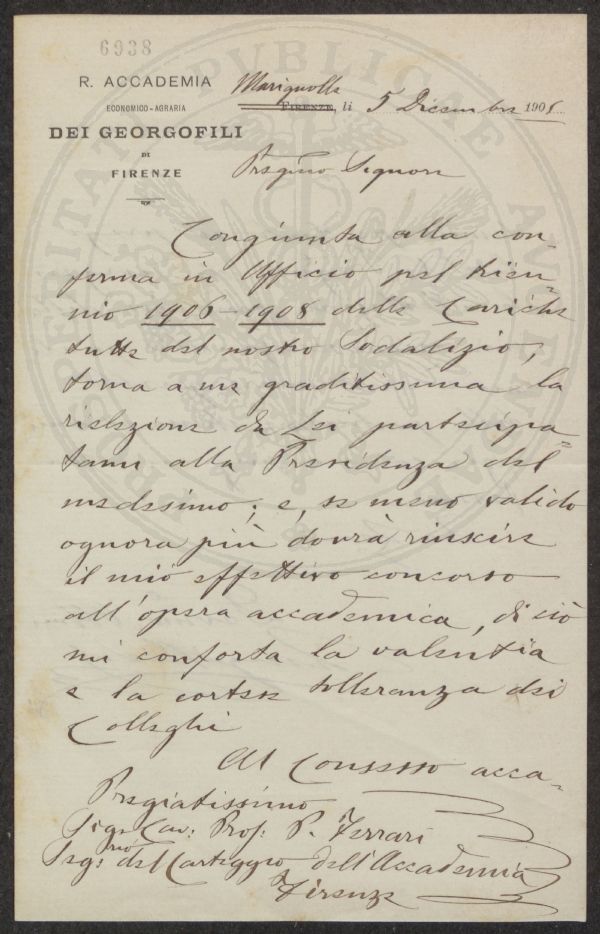 6938
R. ACCADEMIA
ECONOMICO-AGRARIA
DEI GEORGOFILI
DI
FIRENZE
Marignolle
FIRENZE, li 5 Dicembre 1905
Preg.mo Signore
Congiunta alla con-
ferma in Ufficio pel trien-
nio 1906-1908 delle Cariche
tutte del nostro Sodalizio,
torna a me graditissima la
rielezione da Lei partecipa=
tami alla Presidenza del
medesimo; e, se meno valido
ognora più dovrà riuscire
il mio effettivo concorso
all'opera accademica, di ciò
mi conforta la valentia
e la cortese tolleranza dei
Colleghi
Al Consesso acca-
Pregiatissimo
Sig. Cav: Prof: P. Ferrari
Seg:rio del Carteggio dell'Accademia
Firenze